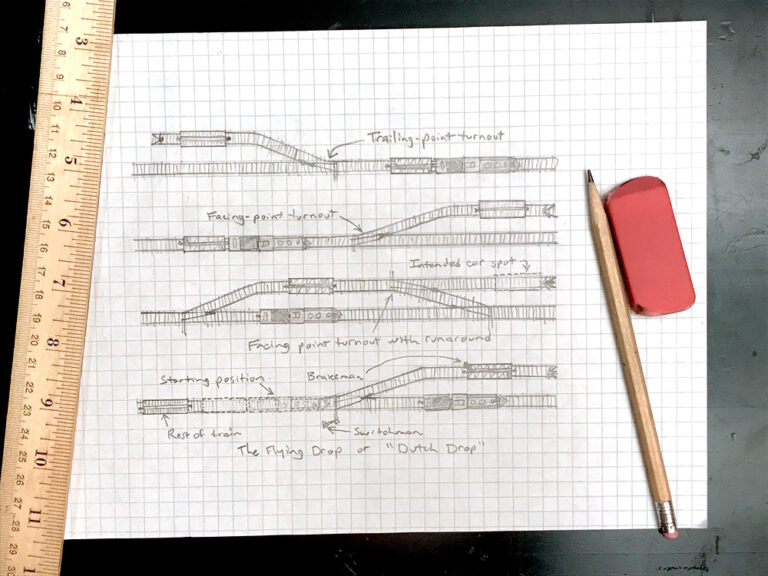 Trailing-point turnout
Facing-point turnout
Intended car spot
Facing point turnout with runaround
Brakeman
Starting position
Rest of train
Switchman
The Flying Drop or "Dutch Drop"
3 4 5 6 7 8 9 10 11
6 7 8 9 10 11 12 13 14 15 16 17 18 19 20 21 22 23 24 25 26 27 28 29 30